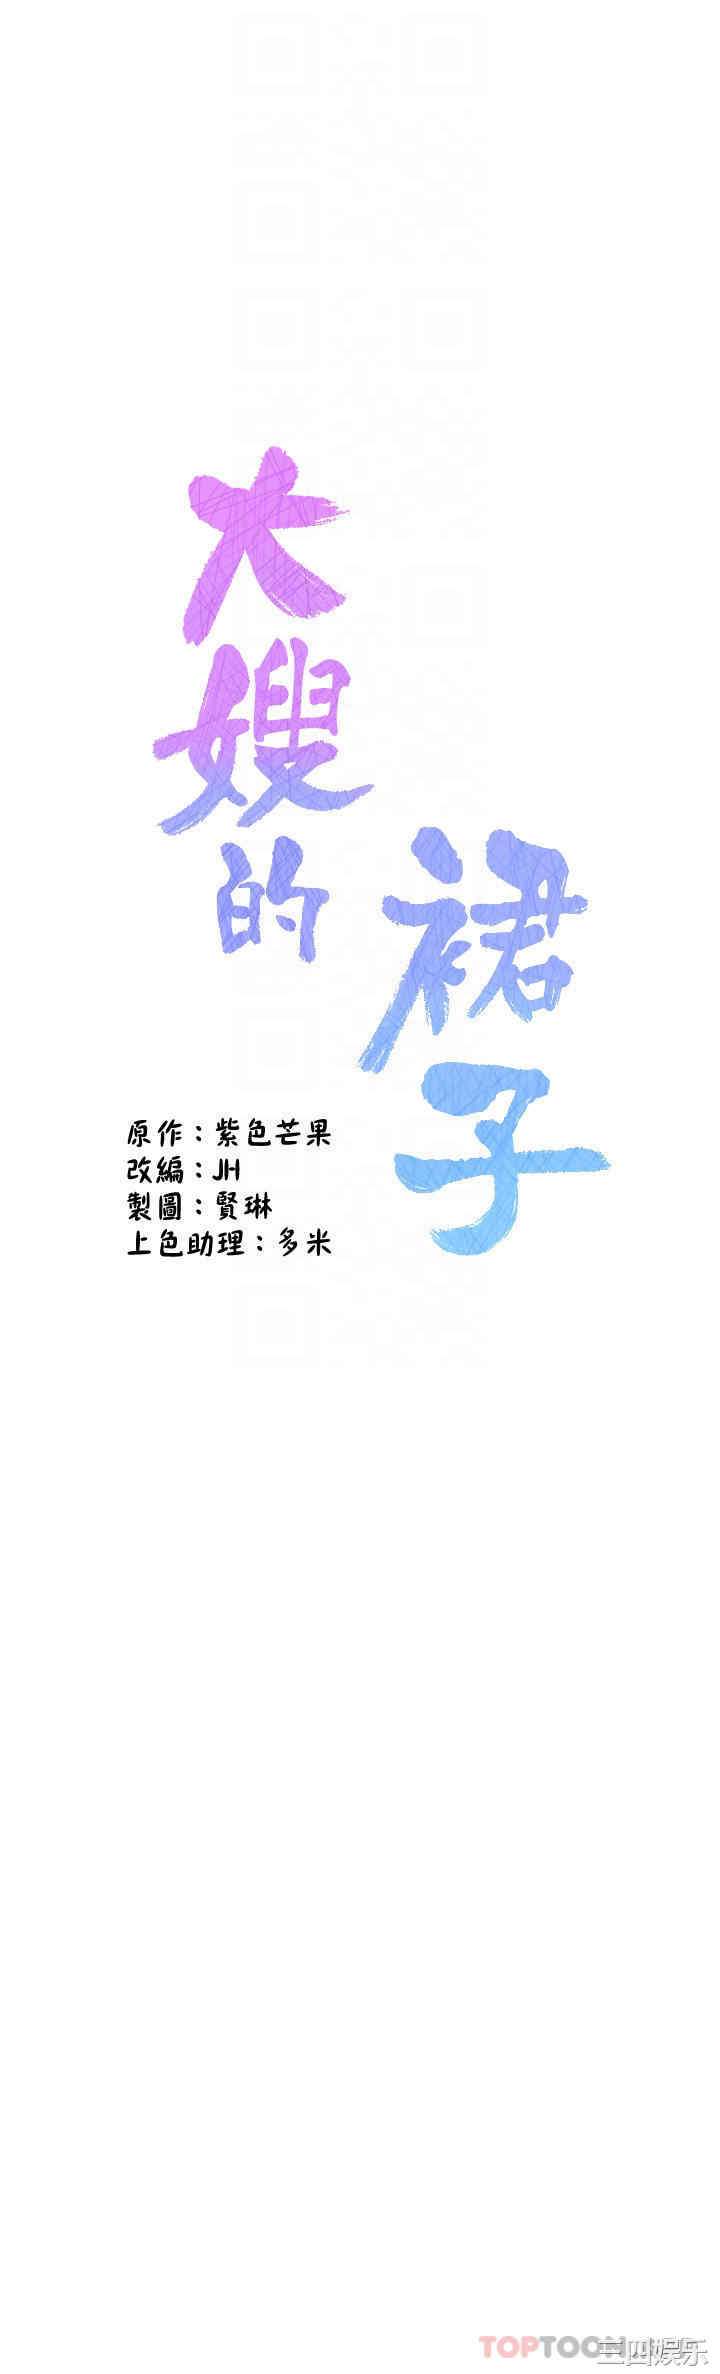 大嫂的
裙子
原作：紫色芒果
改編：JH
製圖：賢琳
上色助理：多米
TOPTOON
三四娱乐